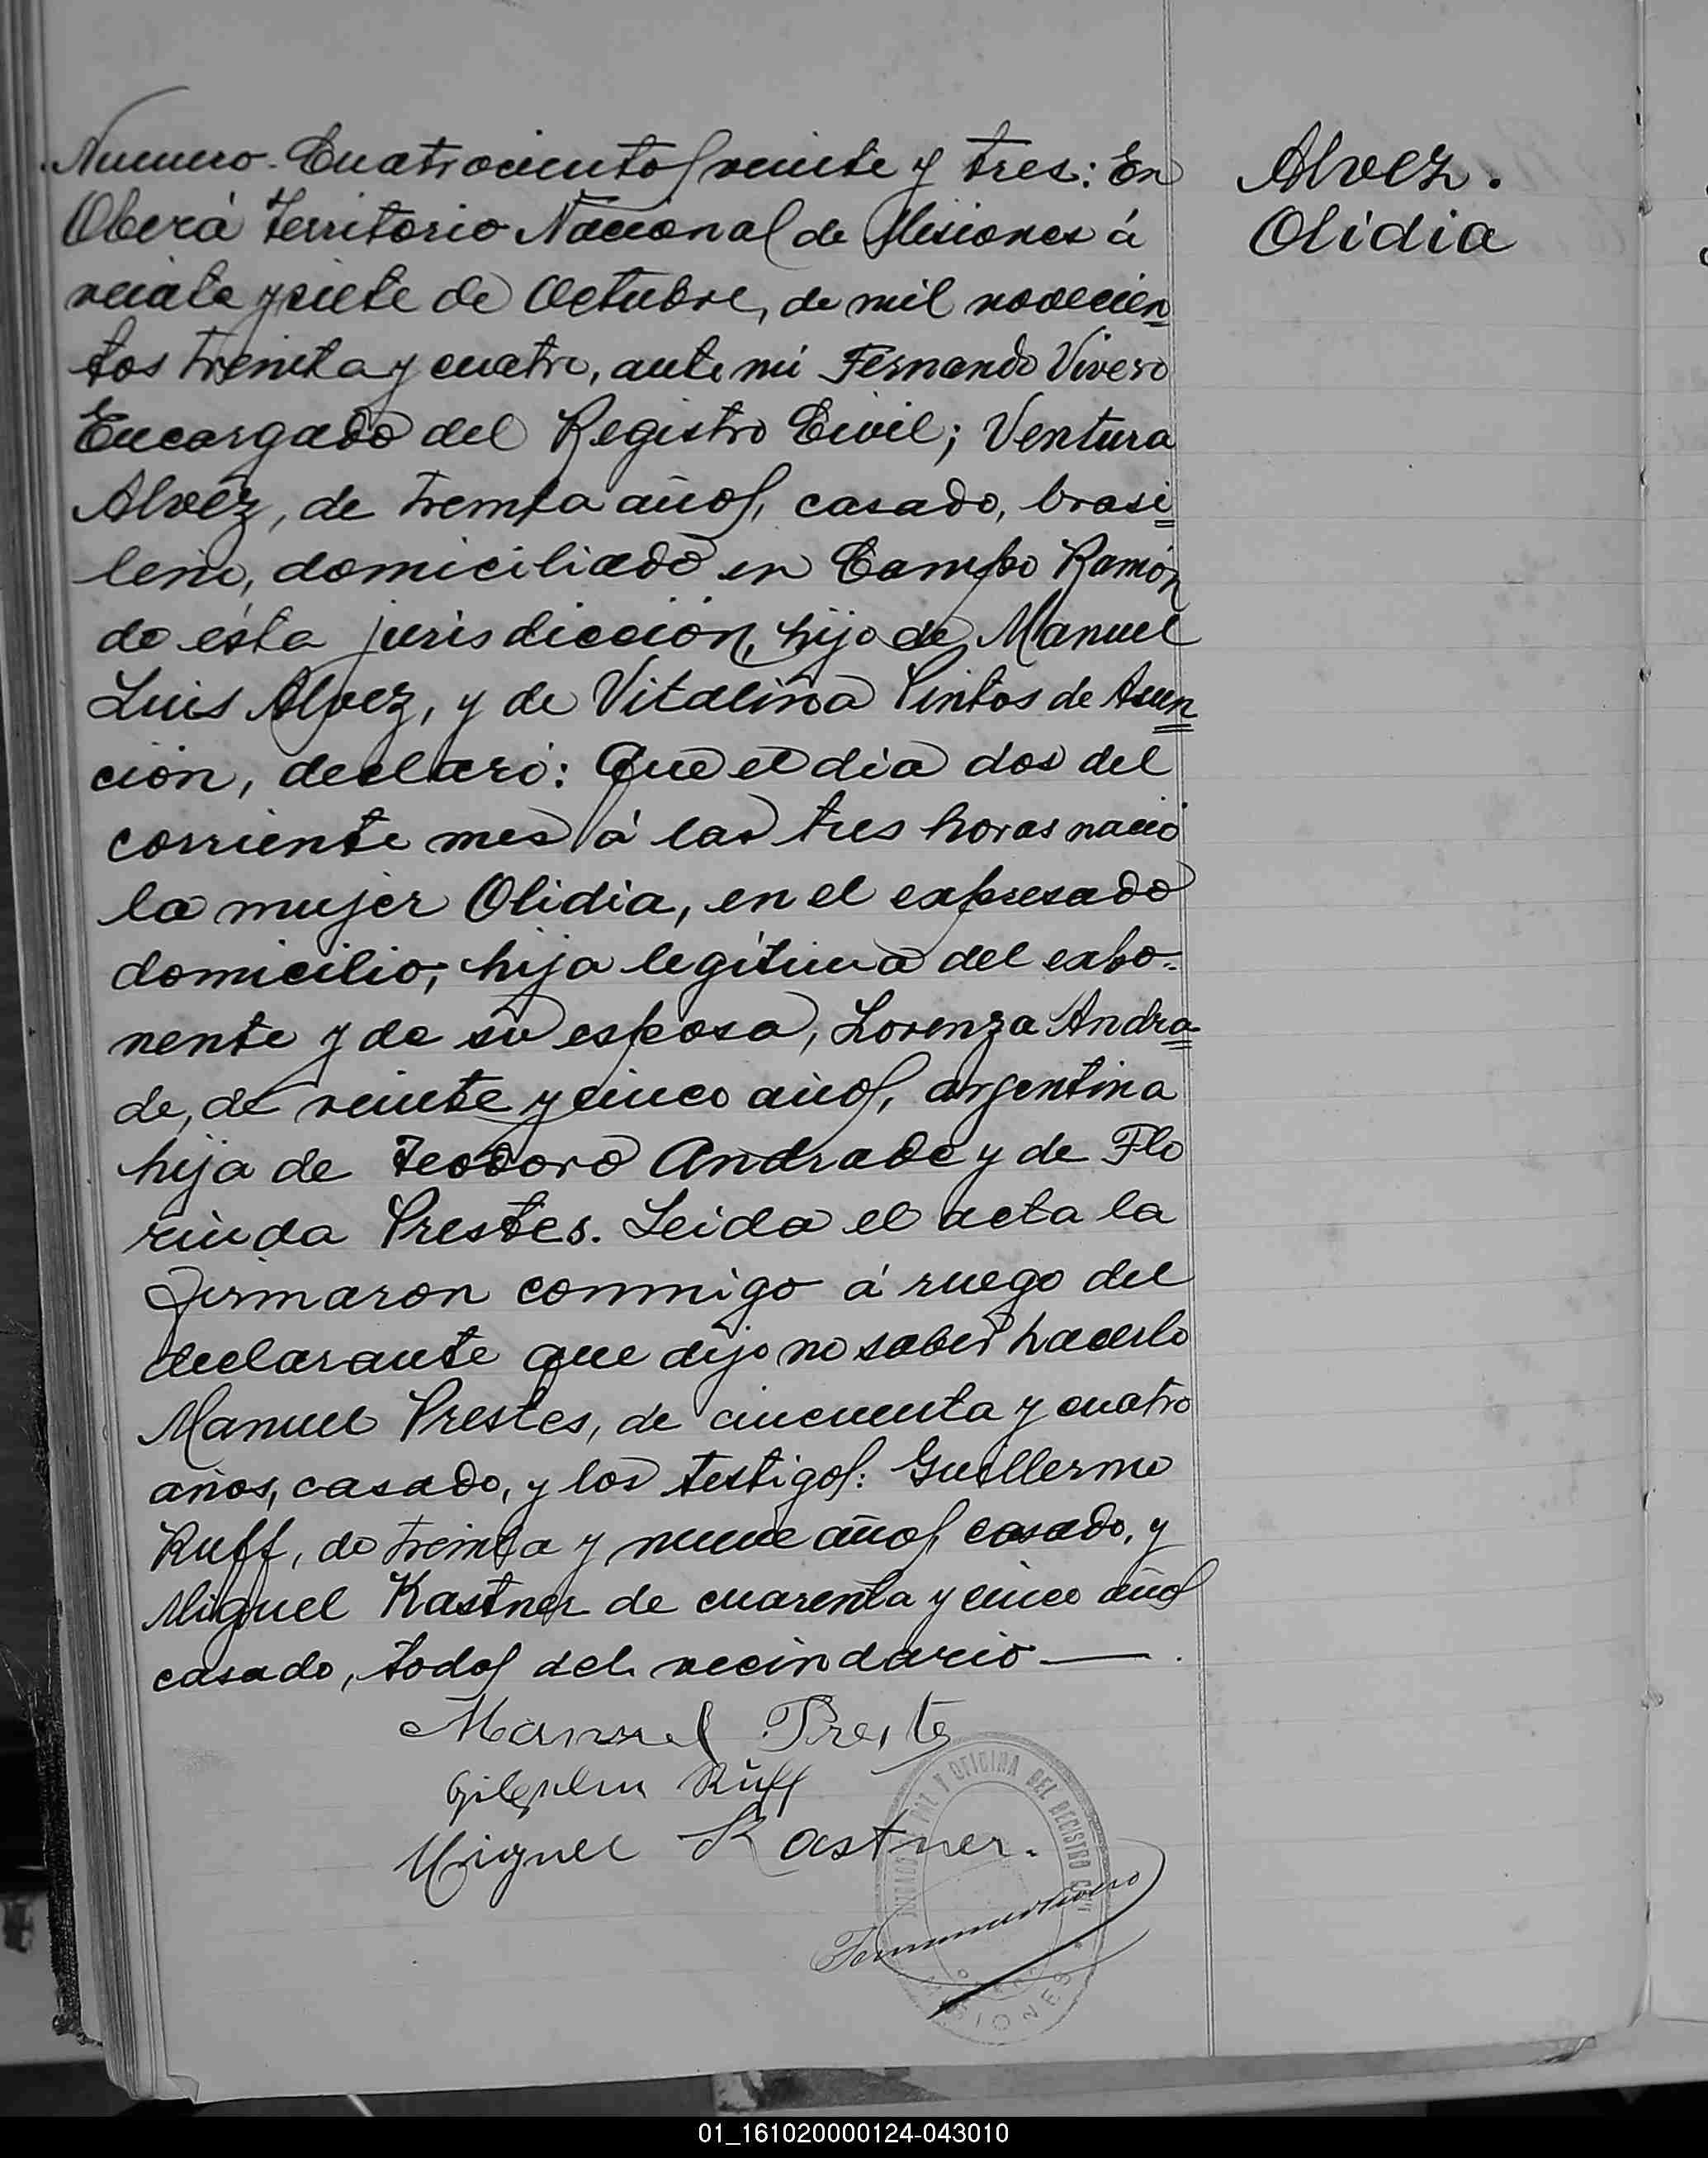 Numero Cuatrocientos veinte y tres: En
Oberá Territorio Nacional de Misiones á
veinte y siete de Octubre, de mil novecien
tos treinta y cuatro, ante mi Fernando Vivero
Encargado del Registro Civil; Ventura
Alvez, de treinta años, casado, brasi
leño, domiciliado en Campo Ramón
de ésta jurisdicción, hijo de Manuel
Luis Alvez, y de Vitalina Pintos de Asun
ción, declaró: Que el dia dos del
corriente mes á las tres horas nació
la mujer Olidia, en el expresado
domicilio, hija legítima del expo-
nente y de su esposa, Lorenza Andra
de, de veinte y cinco años, argentina
hija de Teodoro Andrade y de Flo
rinda Prestes. Leida el acta la
firmaron conmigo á ruego del
declarante que dijo no saber hacerlo
Manuel Prestes, de cincuenta y cuatro
años, casado, y los testigos: Guillermo
Ruff, de treinta y nueve años, casado, y
Miguel Kastner de cuarenta y cinco años
casado, todos del vecindario
Manuel Prestes
Ruff
Miguel Kastner.
Fernando Vivero
Alvez.
Olidia
JUZGADO DE PAZ Y OFICINA DEL REGISTRO CIVIL
MISIONES
01_161020000124-043010